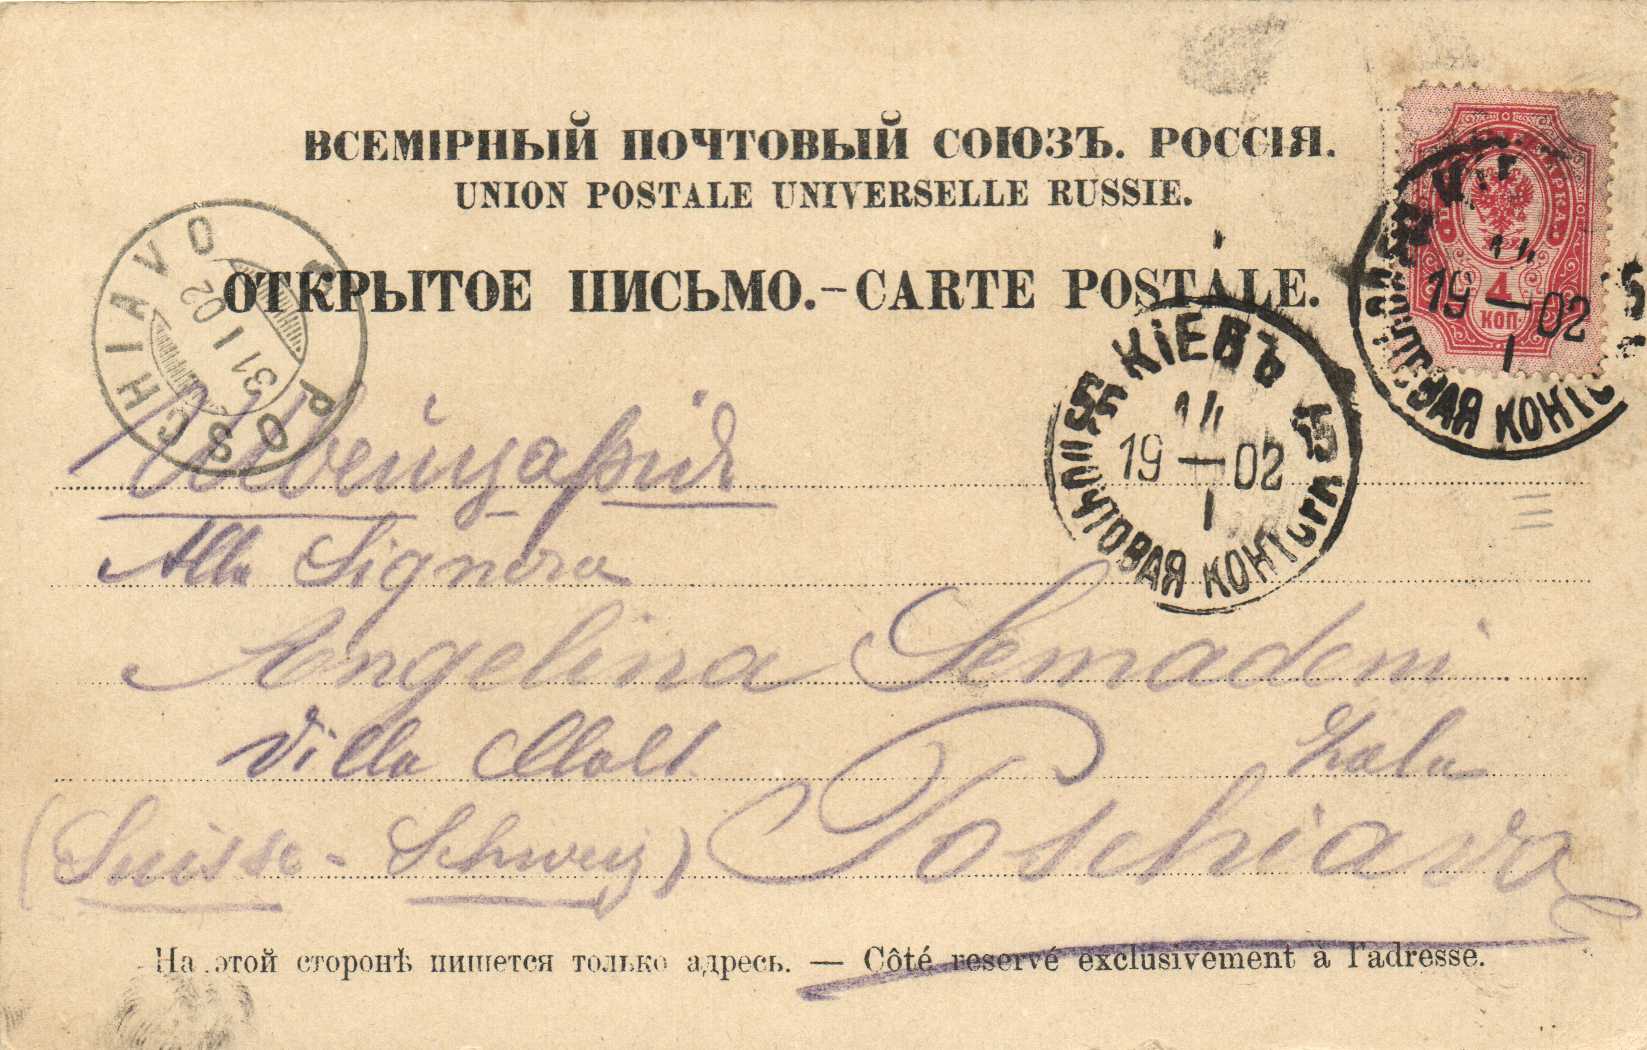 ВСЕМІРНЫЙ ПОЧТОВЫЙ СОЮЗЪ. РОССІЯ.
UNION POSTALE UNIVERSELLE RUSSIE.
ОТКРЫТОЕ ПИСЬМО.–CARTE POSTALE.
4
КОП.
14
19 — 02
I
ПОЧТОВАЯ КОНТОРА
POSCHIAVO
31 I 02
КІЕВЪ
14
19 — 02
I
ПОЧТОВАЯ КОНТОРА
Швейцарія
Alla Signora
Angelina Semadeni
Villa
(Suisse - Schweiz) Poschiavo
На этой сторонѣ пишется только адресъ. — Côté reservé exclusivement à l'adresse.